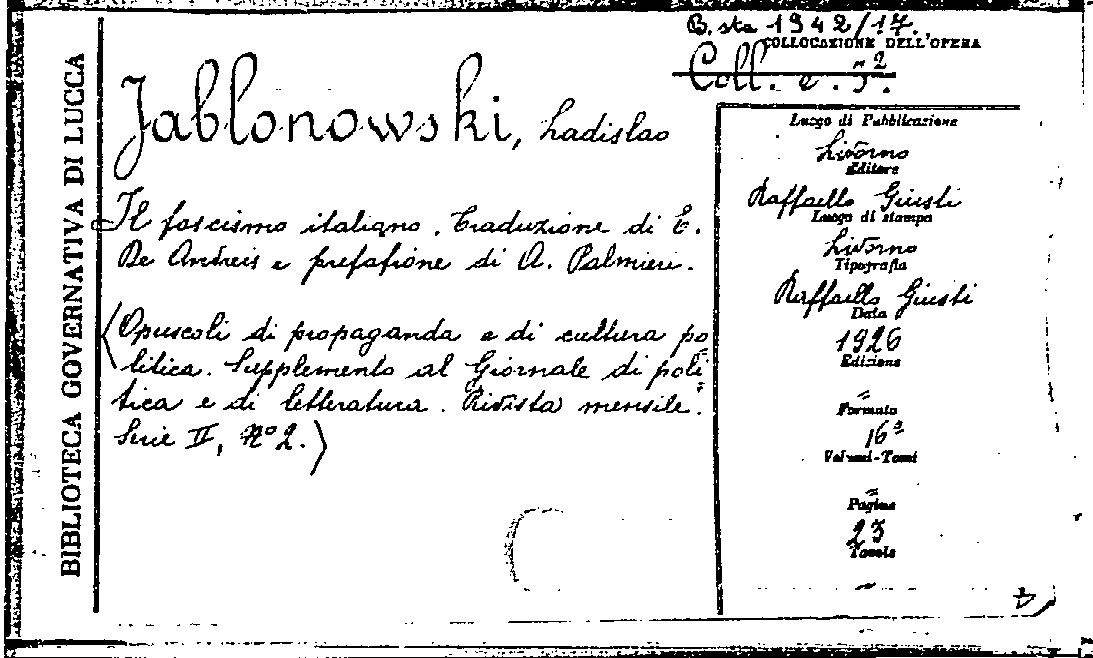 BIBLIOTECA GOVERNATIVA DI LUCCA
B. sta 1942/17.
COLLOCAZIONE DELL'OPERA
Coll. e. 5.2
Jablonowski, Ladislao
Il fascismo italiano. Traduzione di E.
De Andreis e prefazione di A. Palmieri.
(Opuscoli di propaganda e di cultura po
litica. Supplemento al Giornale di poli
tica e di letteratura. Rivista mensile.
Serie II, N° 2.)
Luogo di Pubblicazione
Livorno
Editore
Raffaello Giusti
Luogo di stampa
Livorno
Tipografia
Raffaello Giusti
Data
1926
Edizione
=
Formato
16°
Volumi-Tomi
=
Pagine
23
Tavole